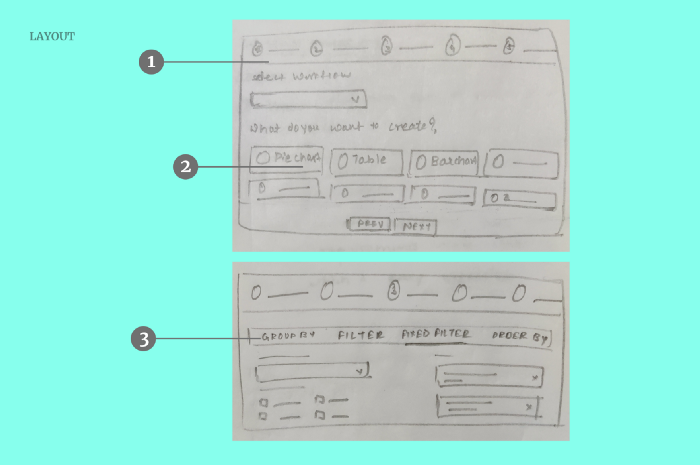 LAYOUT
1
2 3 4 5
select workflow
What do you want to create?
2
Pie chart Table Barchart
2
PREV NEXT
3
3
GROUP BY FILTER FIXED FILTER ORDER BY